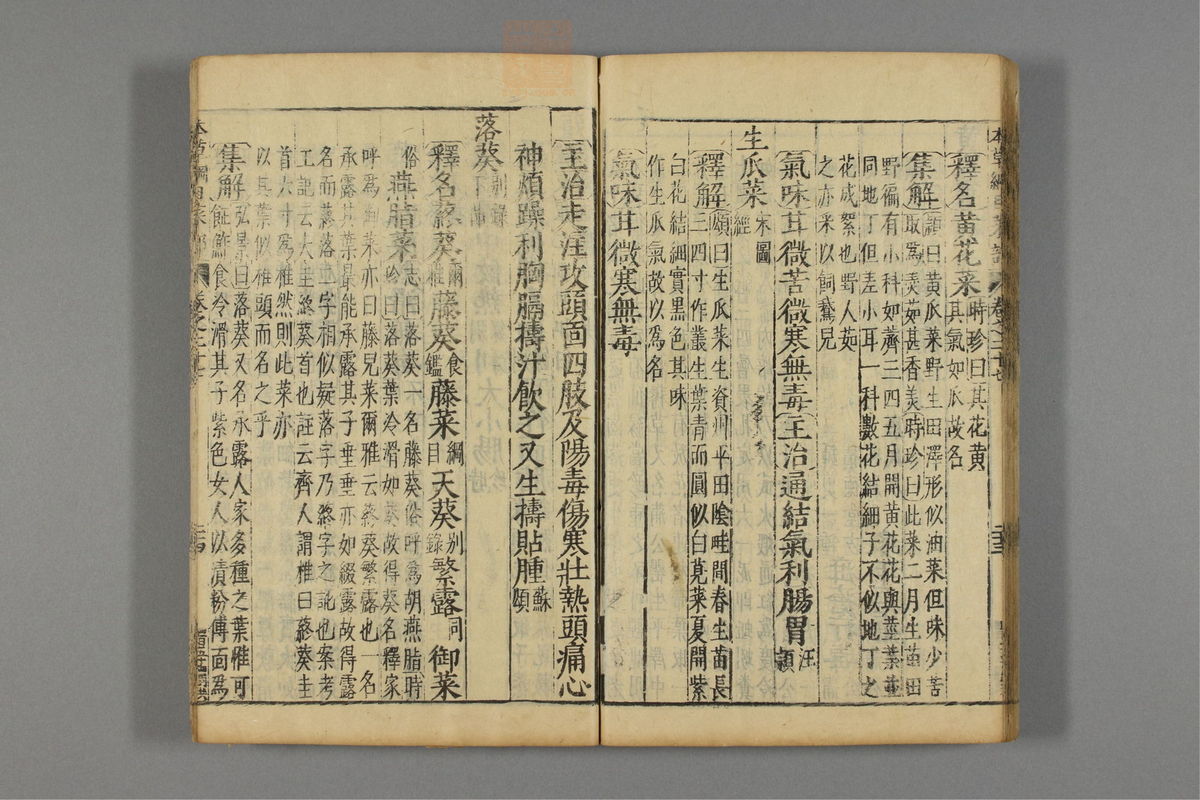 釋名黃花菜時珍曰其花黃其氣如瓜故名
集解穎曰黃瓜菜野生田澤形似油菜但味少苦取爲羹茹甚香美時珍曰此菜二月生苗田
野徧有小科如薺三四五月開黃花花與莖葉並同地丁但差小耳一科數花結細子不似地丁之
花成絮也野人茹之亦采以飼鵞兒
氣味甘微苦微寒無毒主治通結氣利腸胃汪穎
生瓜菜宋圖經
釋解頌曰生瓜菜生資州平田陰畦間春生苗長三四寸作叢生葉青而圓似白莧菜夏開紫
白花結細實黑色其味作生瓜氣故以爲名
氣味甘微寒無毒
主治走注攻頭面四肢及陽毒傷寒壯熱頭痛心
神煩躁利胸膈擣汁飲之又生擣貼腫蘇頌
落葵別錄下品
釋名蔠葵爾雅藤葵食鑑藤菜綱目天葵别錄繁露同御菜
俗燕脂菜志曰落葵一名藤葵俗呼爲胡燕脂時珍曰落葵葉冷滑如葵故得葵名釋家
呼爲御菜亦曰藤兒菜爾雅云蔠葵繁露也一名承露其葉最能承露其子垂垂亦如綴露故得露
名而蔠落二字相似疑落字乃蔠字之訛也案考工記云大圭終葵首也註云齊人謂椎曰終葵圭
首六寸爲椎然則此菜亦以其葉似椎頭而名之乎
集解弘景曰落葵又名承露人家多種之葉惟可飪鮓食冷滑其子紫色女人以漬粉傅面爲